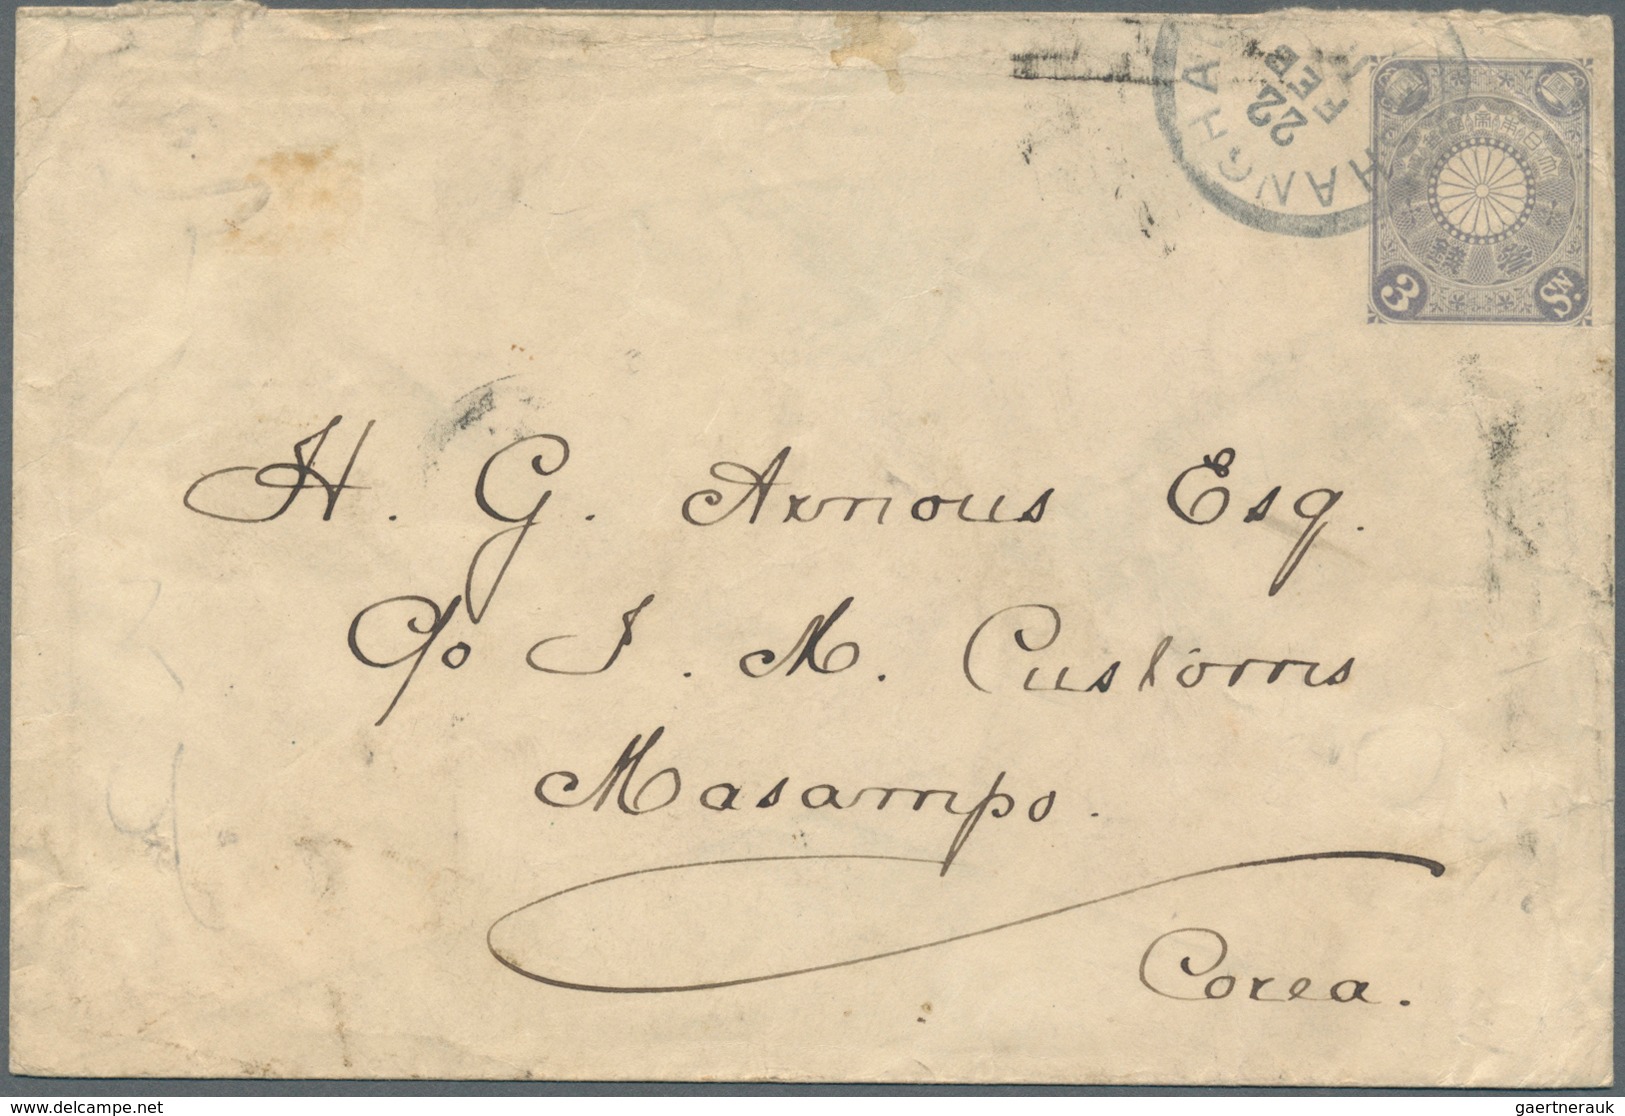 SHANGHAI
22 FEB
大日本帝國郵便
參錢
3 Sn.
H. G. Arnous Esq.
C/o I. M. Customs
Masampo.
Corea.
gaertnerauk